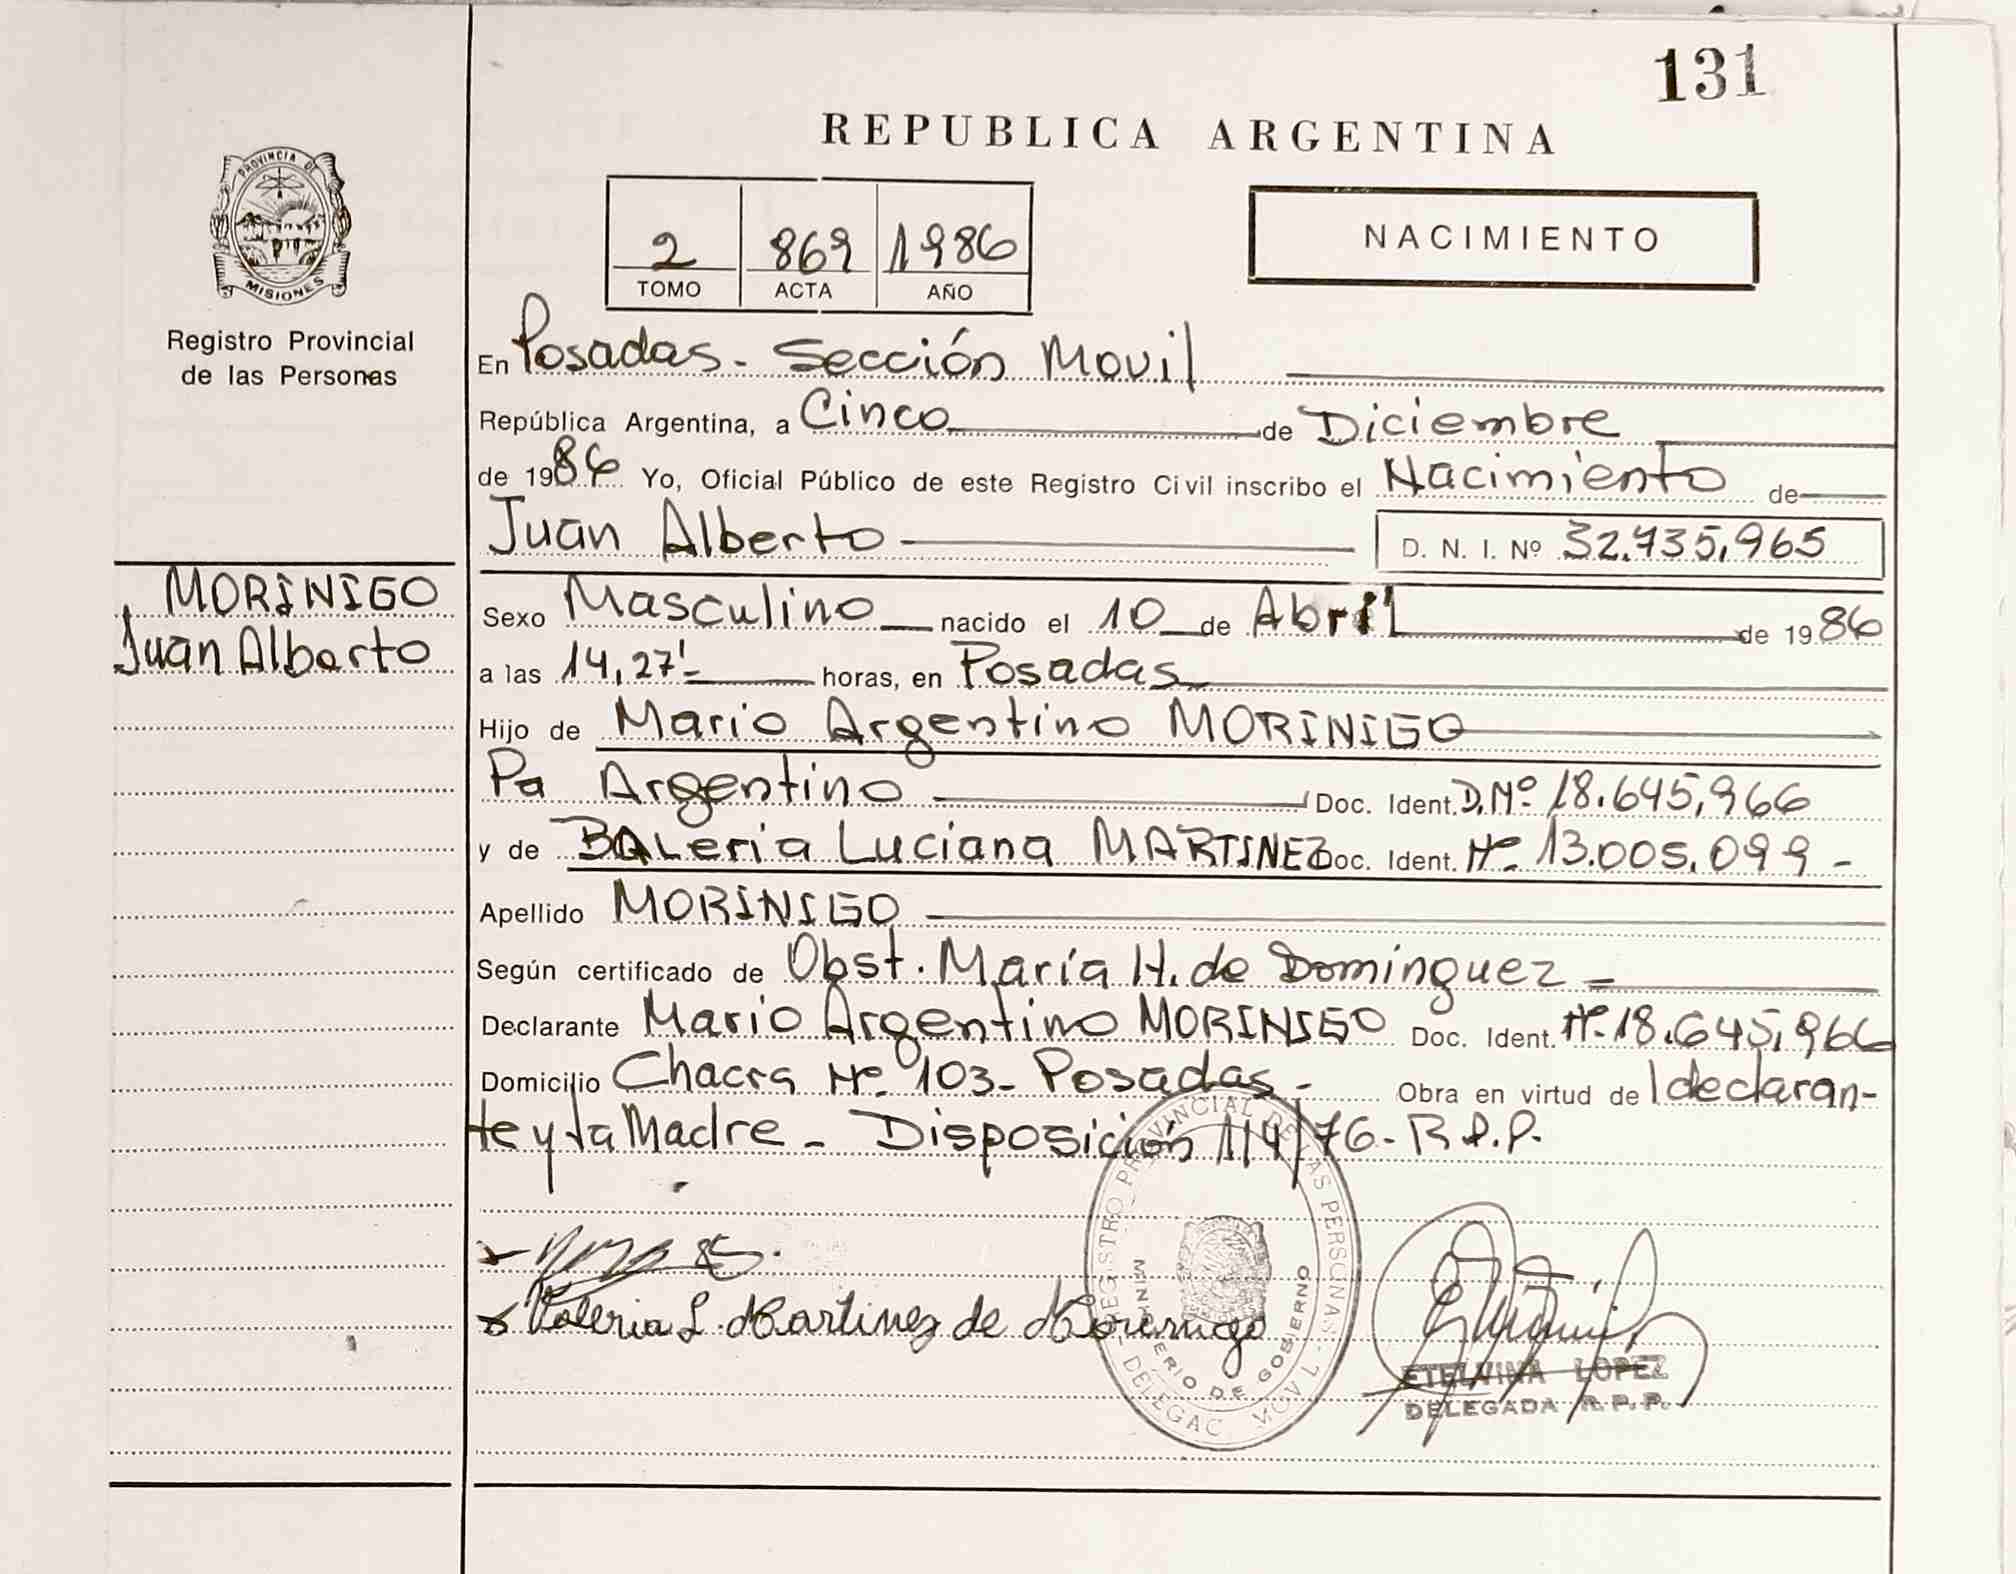 131
REPUBLICA ARGENTINA
PROVINCIA DE
MISIONES
Registro Provincial
de las Personas
2 869 1986
TOMO ACTA AÑO
NACIMIENTO
En Posadas - Sección Movil
República Argentina, a Cinco de Diciembre
de 1986 Yo, Oficial Público de este Registro Civil inscribo el Nacimiento de
Juan Alberto D. N. I. Nº 32.735,965
MORINIGO
Juan Alberto
Sexo Masculino nacido el 10 de Abril de 1986
a las 14,27' horas, en Posadas
Hijo de Mario Argentino MORINIGO
Pa Argentino Doc. Ident. D.Nº 18.645,966
y de BALeria Luciana MARTINEZ Doc. Ident. Nº 13.005.099 -
Apellido MORINIGO
Según certificado de Obst. María H. de Domínguez -
Declarante Mario Argentino MORINIGO Doc. Ident. Nº 18.645,966
Domicilio Chacra Nº 103 - Posadas - Obra en virtud de l declaran-
te y la Madre - Disposición 1/4/76 - R.P.P.
Valeria L. Martinez de Morinigo
REGISTRO PROVINCIAL DE LAS PERSONAS
MINISTERIO DE GOBIERNO
DELEGAC MOVIL
ETELVINA LOPEZ
DELEGADA R.P.P.